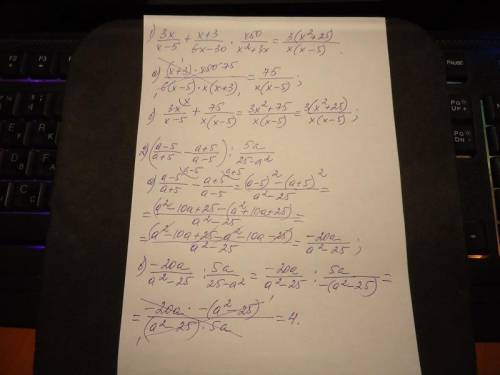 1) 3x/(x-5) + (x+3)/(6x-30) · x50/(x²+3x) = 3(x²+25)/(x(x-5)).
a) (x+3) · x50 75/(6(x-5) · x(x+3)) = 75/(x(x-5));
b) 3x^x/(x-5) + 75/(x(x-5)) = (3x²+75)/(x(x-5)) = 3(x²+25)/(x(x-5));
2) ((a-5)/(a+5) - (a+5)/(a-5)) : 5a/(25-a²)
a) (a-5)^a-5/(a+5) - (a+5)^a+5/(a-5) = ((a-5)² - (a+5)²)/(a²-25) =
= (a²-10a+25-(a²+10a+25))/(a²-25) =
= (a²-10a+25-a²-10a-25)/(a²-25) = -20a/(a²-25);
b) -20a/(a²-25) : 5a/(25-a²) = -20a/(a²-25) : 5a/(-(a²-25)) =
= -20a · -(a²-25)/((a²-25) · 5a) = 4.